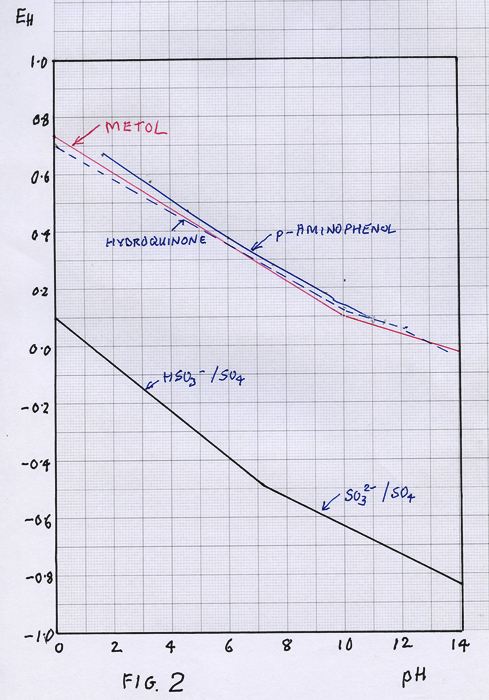 EH
1.0
0.8
METOL
0.6
0.4
P-AMINOPHENOL
HYDROQUINONE
0.2
0.0
HSO₃⁻/SO₄
-0.2
-0.4
SO₃²⁻/SO₄
-0.6
-0.8
-1.0
0 2 4 6 8 10 12 14
FIG. 2 pH